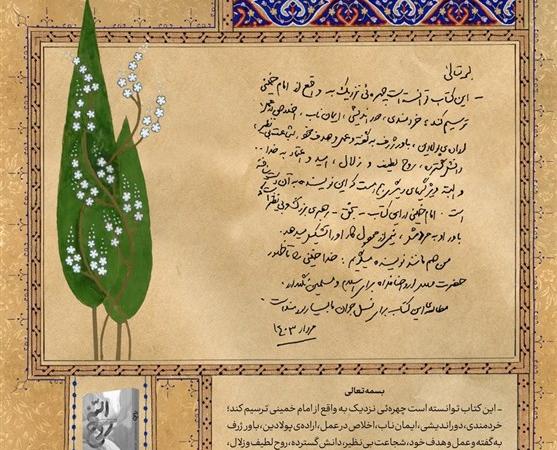 بسمه تعالی
- این کتاب توانسته است چهره‌ئی نزدیک به واقع از امام خمینی
ترسیم کند؛ خردمندی، دوراندیشی، ایمان ناب، اخلاص در عمل
اراده‌ی پولادین، باور ژرف به گفته و عمل و هدف خود، شجاعت بی‌نظیر
دانش گسترده، روح لطیف و زلال، امید و اعتماد به خدا ...
و البته ویژگیهای دیگری نیز هست که این نویسنده به آن
است. امام خمینی در این کتاب - بحق - رهبری بزرگ و بی‌نظیر
باور او به مردمش، نیز از
من هم مانند نویسنده میگویم: خدا خمینی را تا ظهور
حضرت مهدی ارواحنافداه برای اسلام و مسلمین نگهدارد.
مطالعه‌ی این کتاب برای نسل جوان ما بسیار سودمند است
مرداد ۱۴۰۳
بسمه‌تعالی
- این کتاب توانسته است چهره‌ئی نزدیک به واقع از امام خمینی ترسیم کند؛
خردمندی، دوراندیشی، ایمان ناب، اخلاص در عمل، اراده‌ی پولادین، باور ژرف
به گفته و عمل و هدف خود، شجاعت بی‌نظیر، دانش گسترده، روح لطیف و زلال،